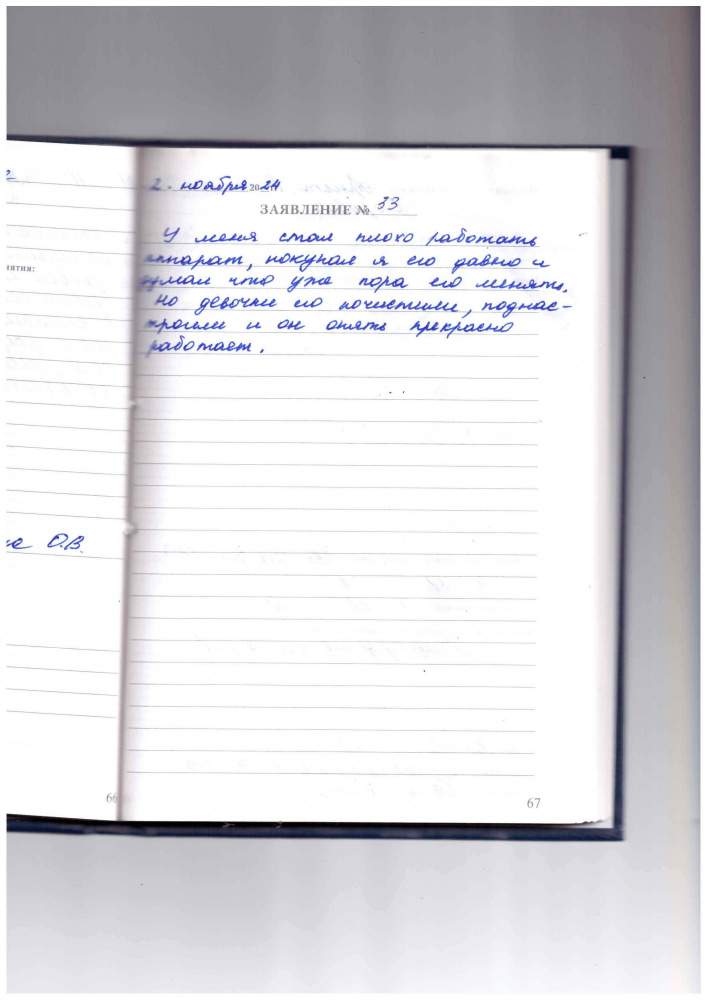 2. ноября 2024
ЗАЯВЛЕНИЕ № 33
У меня стал плохо работать
аппарат, покупал я его давно и
думал что уже пора его менять.
Но девочки его почистили, поднас-
троили и он опять прекрасно
работает.
67
иятия:
О.В.
66